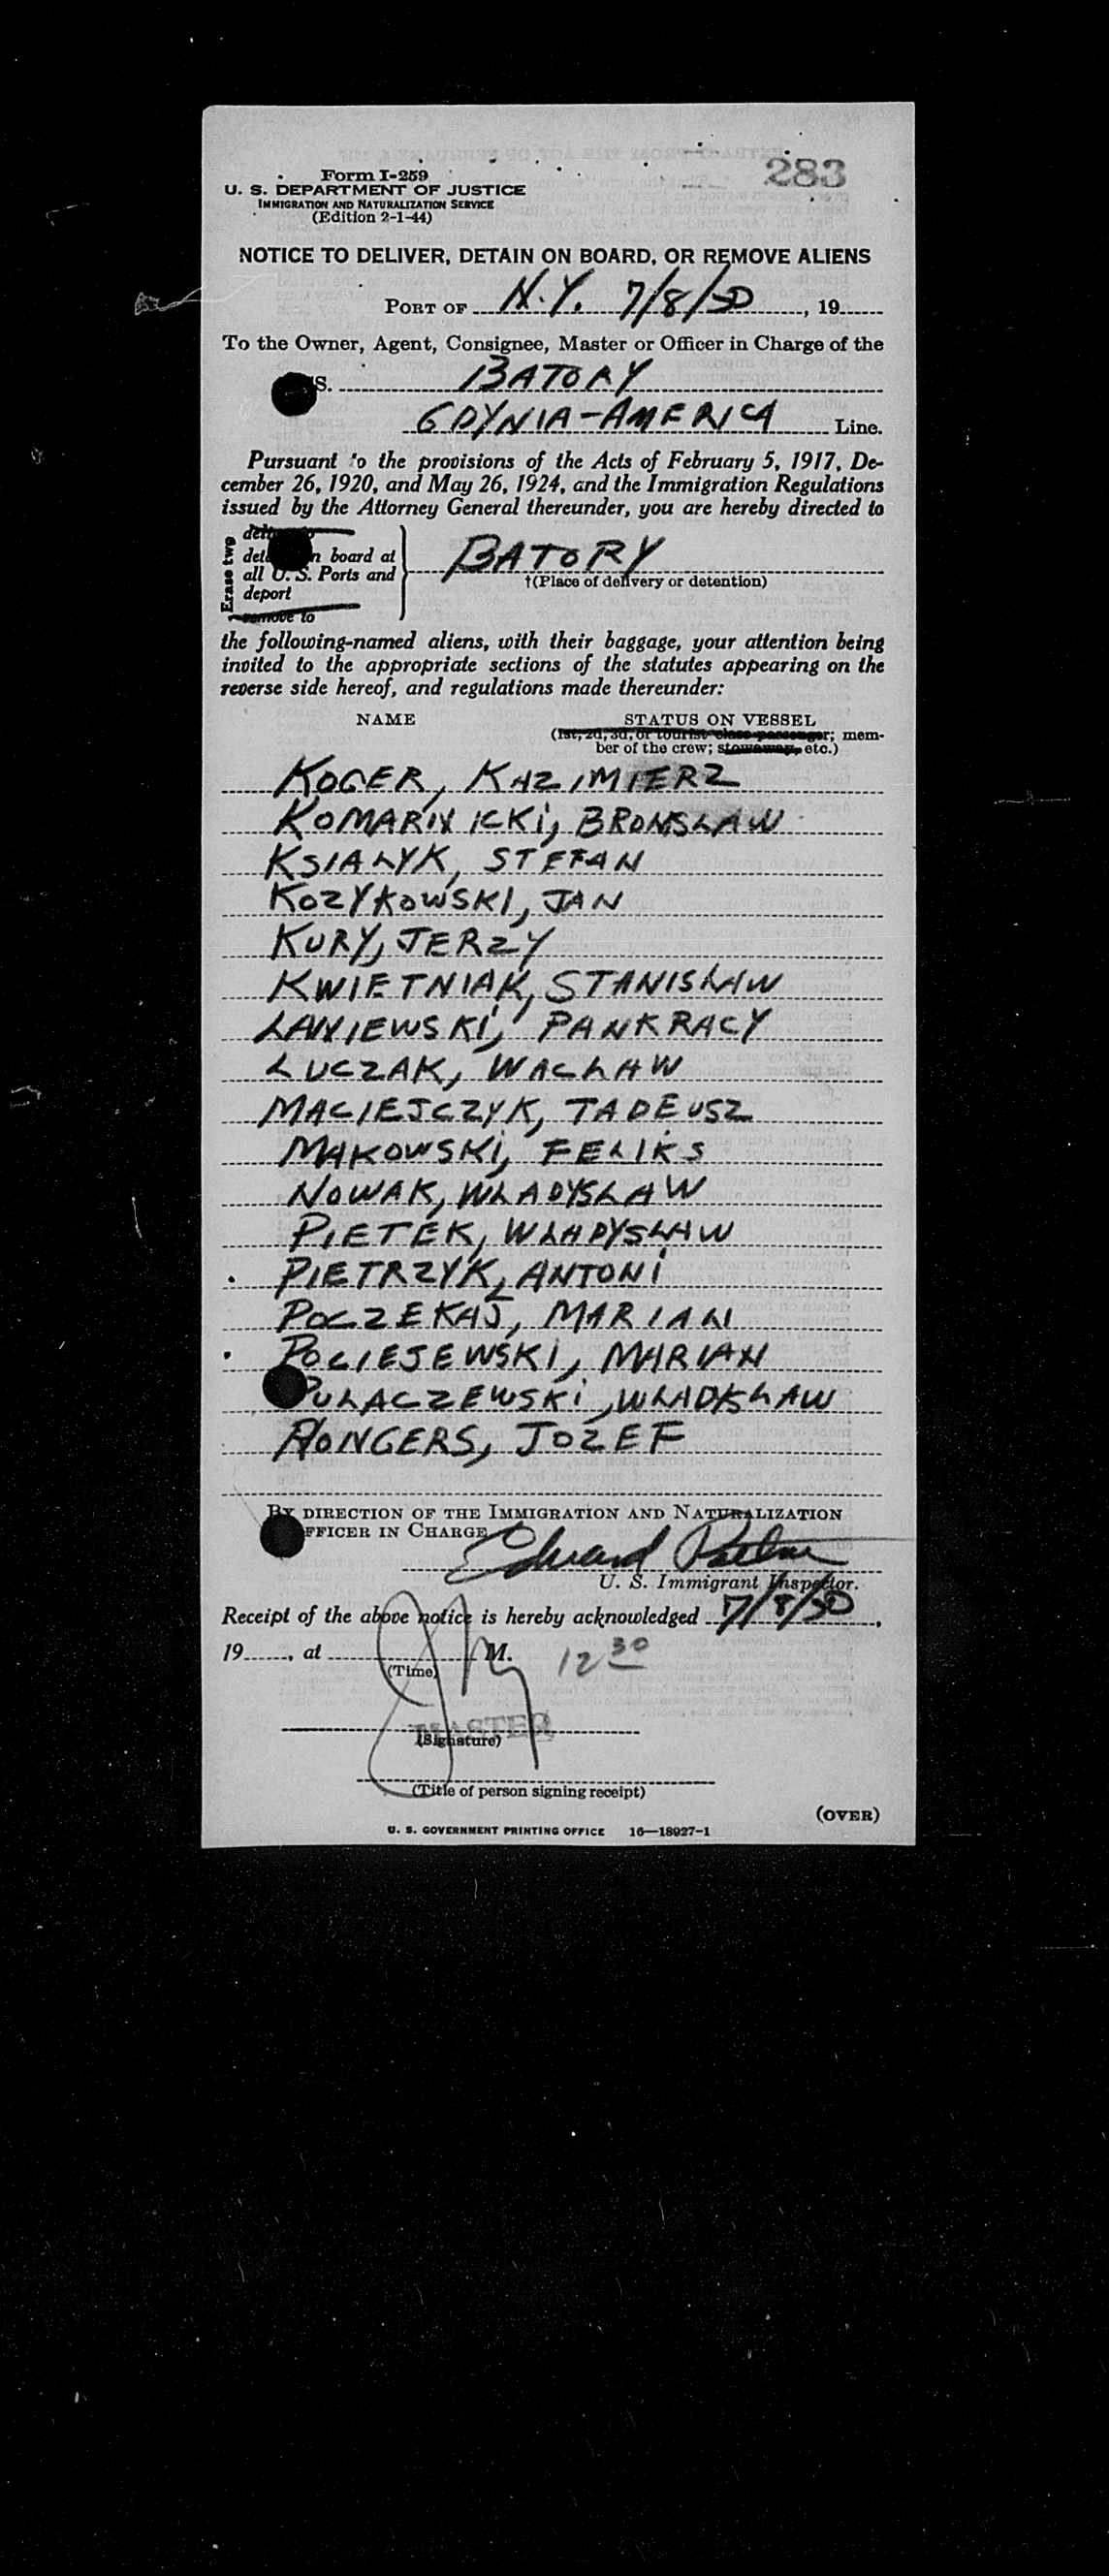 283
Form I-259
U. S. DEPARTMENT OF JUSTICE
IMMIGRATION AND NATURALIZATION SERVICE
(Edition 2-1-44)
NOTICE TO DELIVER, DETAIN ON BOARD, OR REMOVE ALIENS
PORT OF N.Y. 7/8/50, 19
To the Owner, Agent, Consignee, Master or Officer in Charge of the
S. BATORY
GDYNIA-AMERICA Line.
Pursuant to the provisions of the Acts of February 5, 1917, De-
cember 26, 1920, and May 26, 1924, and the Immigration Regulations
issued by the Attorney General thereunder, you are hereby directed to
Erase two
board at
all U. S. Ports and
deport
remove to
BATORY
†(Place of delivery or detention)
the following-named aliens, with their baggage, your attention being
invited to the appropriate sections of the statutes appearing on the
reverse side hereof, and regulations made thereunder:
NAME STATUS ON VESSEL
(1st, 2d, 3d, or tourist class passenger; mem-
ber of the crew; stowaway, etc.)
KOGER, KAZIMIERZ
KOMARNICKI, BRONSŁAW
KSIAŁYK, STEFAN
KOZYKOWSKI, JAN
KURY, JERZY
KWIETNIAK, STANISŁAW
PANKRACY
ŁUCZAK, WACŁAW
MACIEJCZYK, TADEUSZ
MAKOWSKI, FELIKS
NOWAK, WŁADYSŁAW
PIETEK, WŁADYSŁAW
PIETRZYK, ANTONI
POCZEKAJ, MARIAN
POCIEJEWSKI, MARIAN
PUŁACZEWSKI, WŁADYSŁAW
RONGERS, JOZEF
BY DIRECTION OF THE IMMIGRATION AND NATURALIZATION
OFFICER IN CHARGE
Edward
U. S. Immigrant Inspector.
Receipt of the above notice is hereby acknowledged 7/8/50,
19, at M. 12 30
(Time)
MASTER
(Signature)
(Title of person signing receipt)
(OVER)
U. S. GOVERNMENT PRINTING OFFICE 16—18927-1